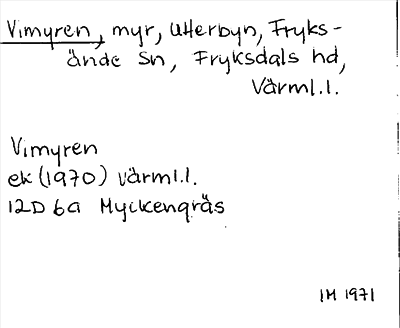 Vimyren, myr, Utterbyn, Fryks-
ände sn, Fryksdals hd,
Värml.l.
Vimyren
ek (1970) Värml.l.
12D 6a Myckengräs
IM 1971